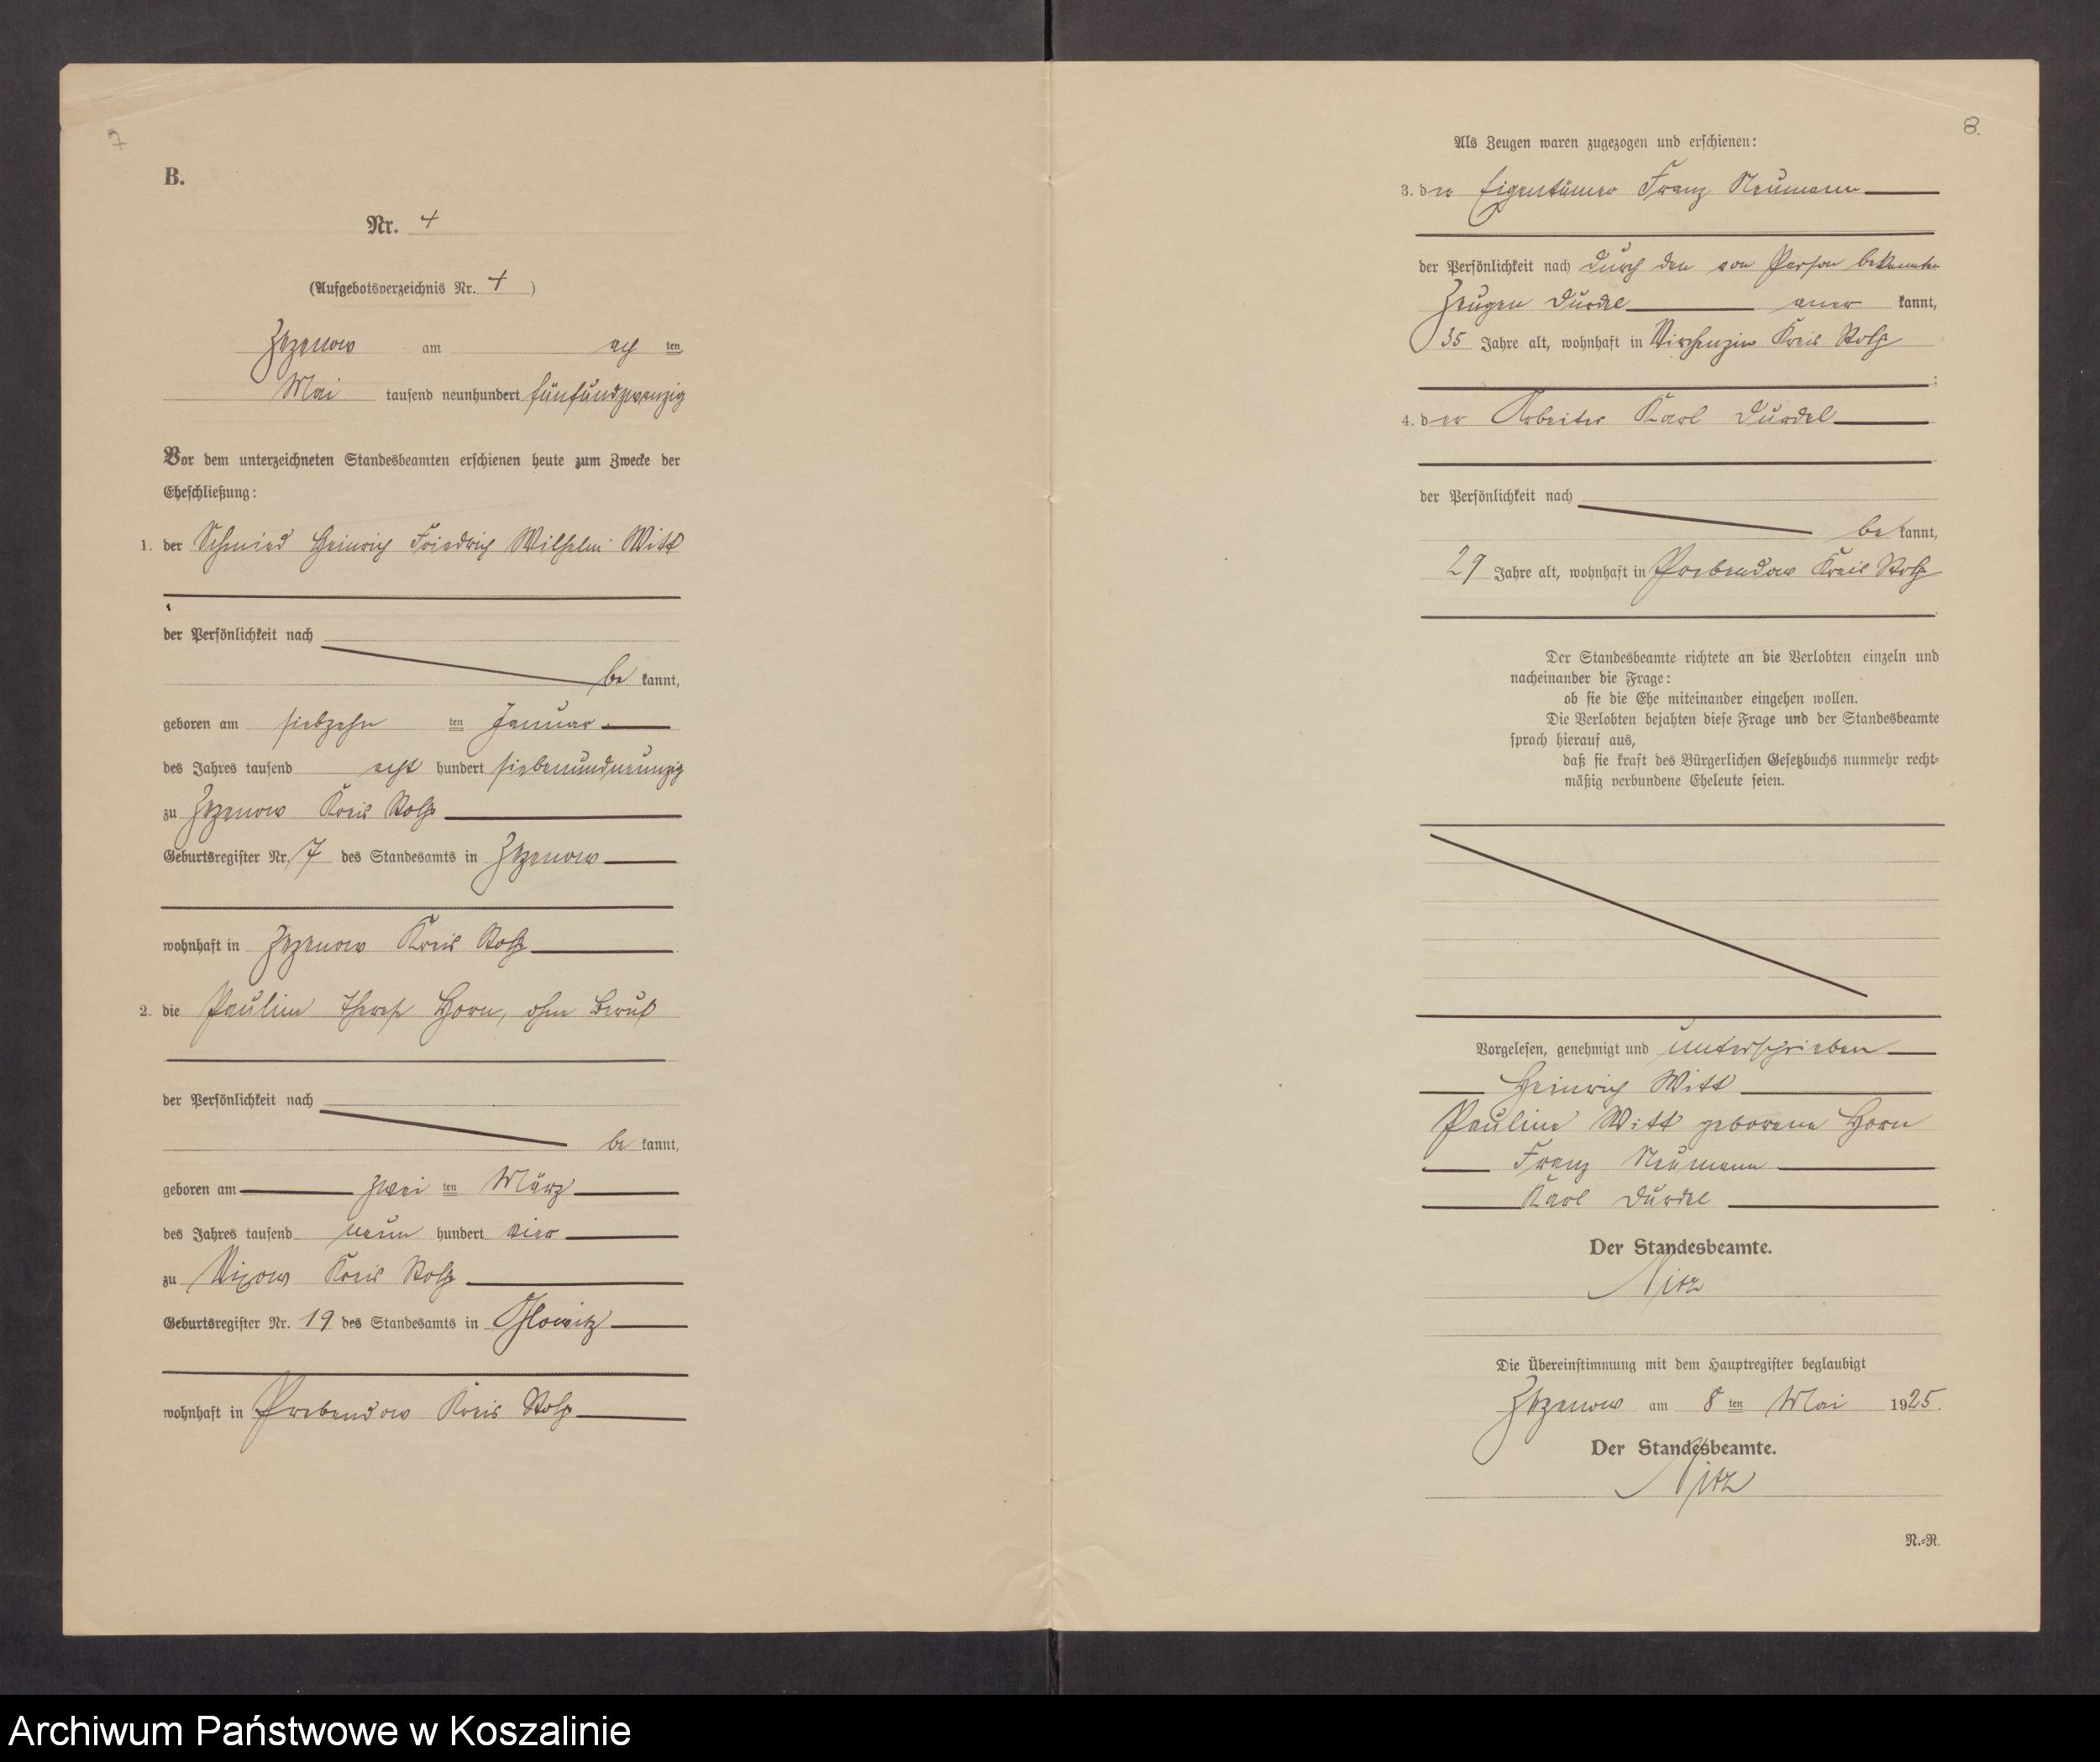 7
B.
Nr. 4
(Aufgebotsverzeichnis Nr. 4)
Zezenow am ach ten
Mai tausend neunhundert fünfundzwanzig
Vor dem unterzeichneten Standesbeamten erschienen heute zum Zwecke der
Eheschließung:
1. der Schmied Heinrich Friedrich Wilhelm Witt
der Persönlichkeit nach
be kannt,
geboren am siebzehn ten Januar
des Jahres tausend acht hundert siebenundneunzig
zu Zezenow Kreis Stolp
Geburtsregister Nr. 7 des Standesamts in Zezenow
wohnhaft in Zezenow Kreis Stolp
2. die Pauline Therese Horn, ohne Beruf
der Persönlichkeit nach
be kannt,
geboren am zwei ten März
des Jahres tausend neun hundert vier
zu Vixow Kreis Stolp
Geburtsregister Nr. 19 des Standesamts in Glowitz
wohnhaft in Prebendow Kreis Stolp
8.
Als Zeugen waren zugezogen und erschienen:
3. der Eigentümer Franz Neumann
der Persönlichkeit nach durch den von Person bekannten
Zeugen Durdel aner kannt,
35 Jahre alt, wohnhaft in Virchenzin Kreis Stolp
;
4. der Arbeiter Karl Durdel
der Persönlichkeit nach
be kannt,
29 Jahre alt, wohnhaft in Prebendow Kreis Stolp
Der Standesbeamte richtete an die Verlobten einzeln und
nacheinander die Frage:
ob sie die Ehe miteinander eingehen wollen.
Die Verlobten bejahten diese Frage und der Standesbeamte
sprach hierauf aus,
daß sie kraft des Bürgerlichen Gesetzbuchs nunmehr recht-
mäßig verbundene Eheleute seien.
Vorgelesen, genehmigt und unterschrieben
Heinrich Witt
Pauline Witt geborene Horn
Franz Neumann
Karl Durdel
Der Standesbeamte.
Nitz
Die Übereinstimmung mit dem Hauptregister beglaubigt
Zezenow am 8 ten Mai 1925.
Der Standesbeamte.
Nitz
N.-R.
Archiwum Państwowe w Koszalinie